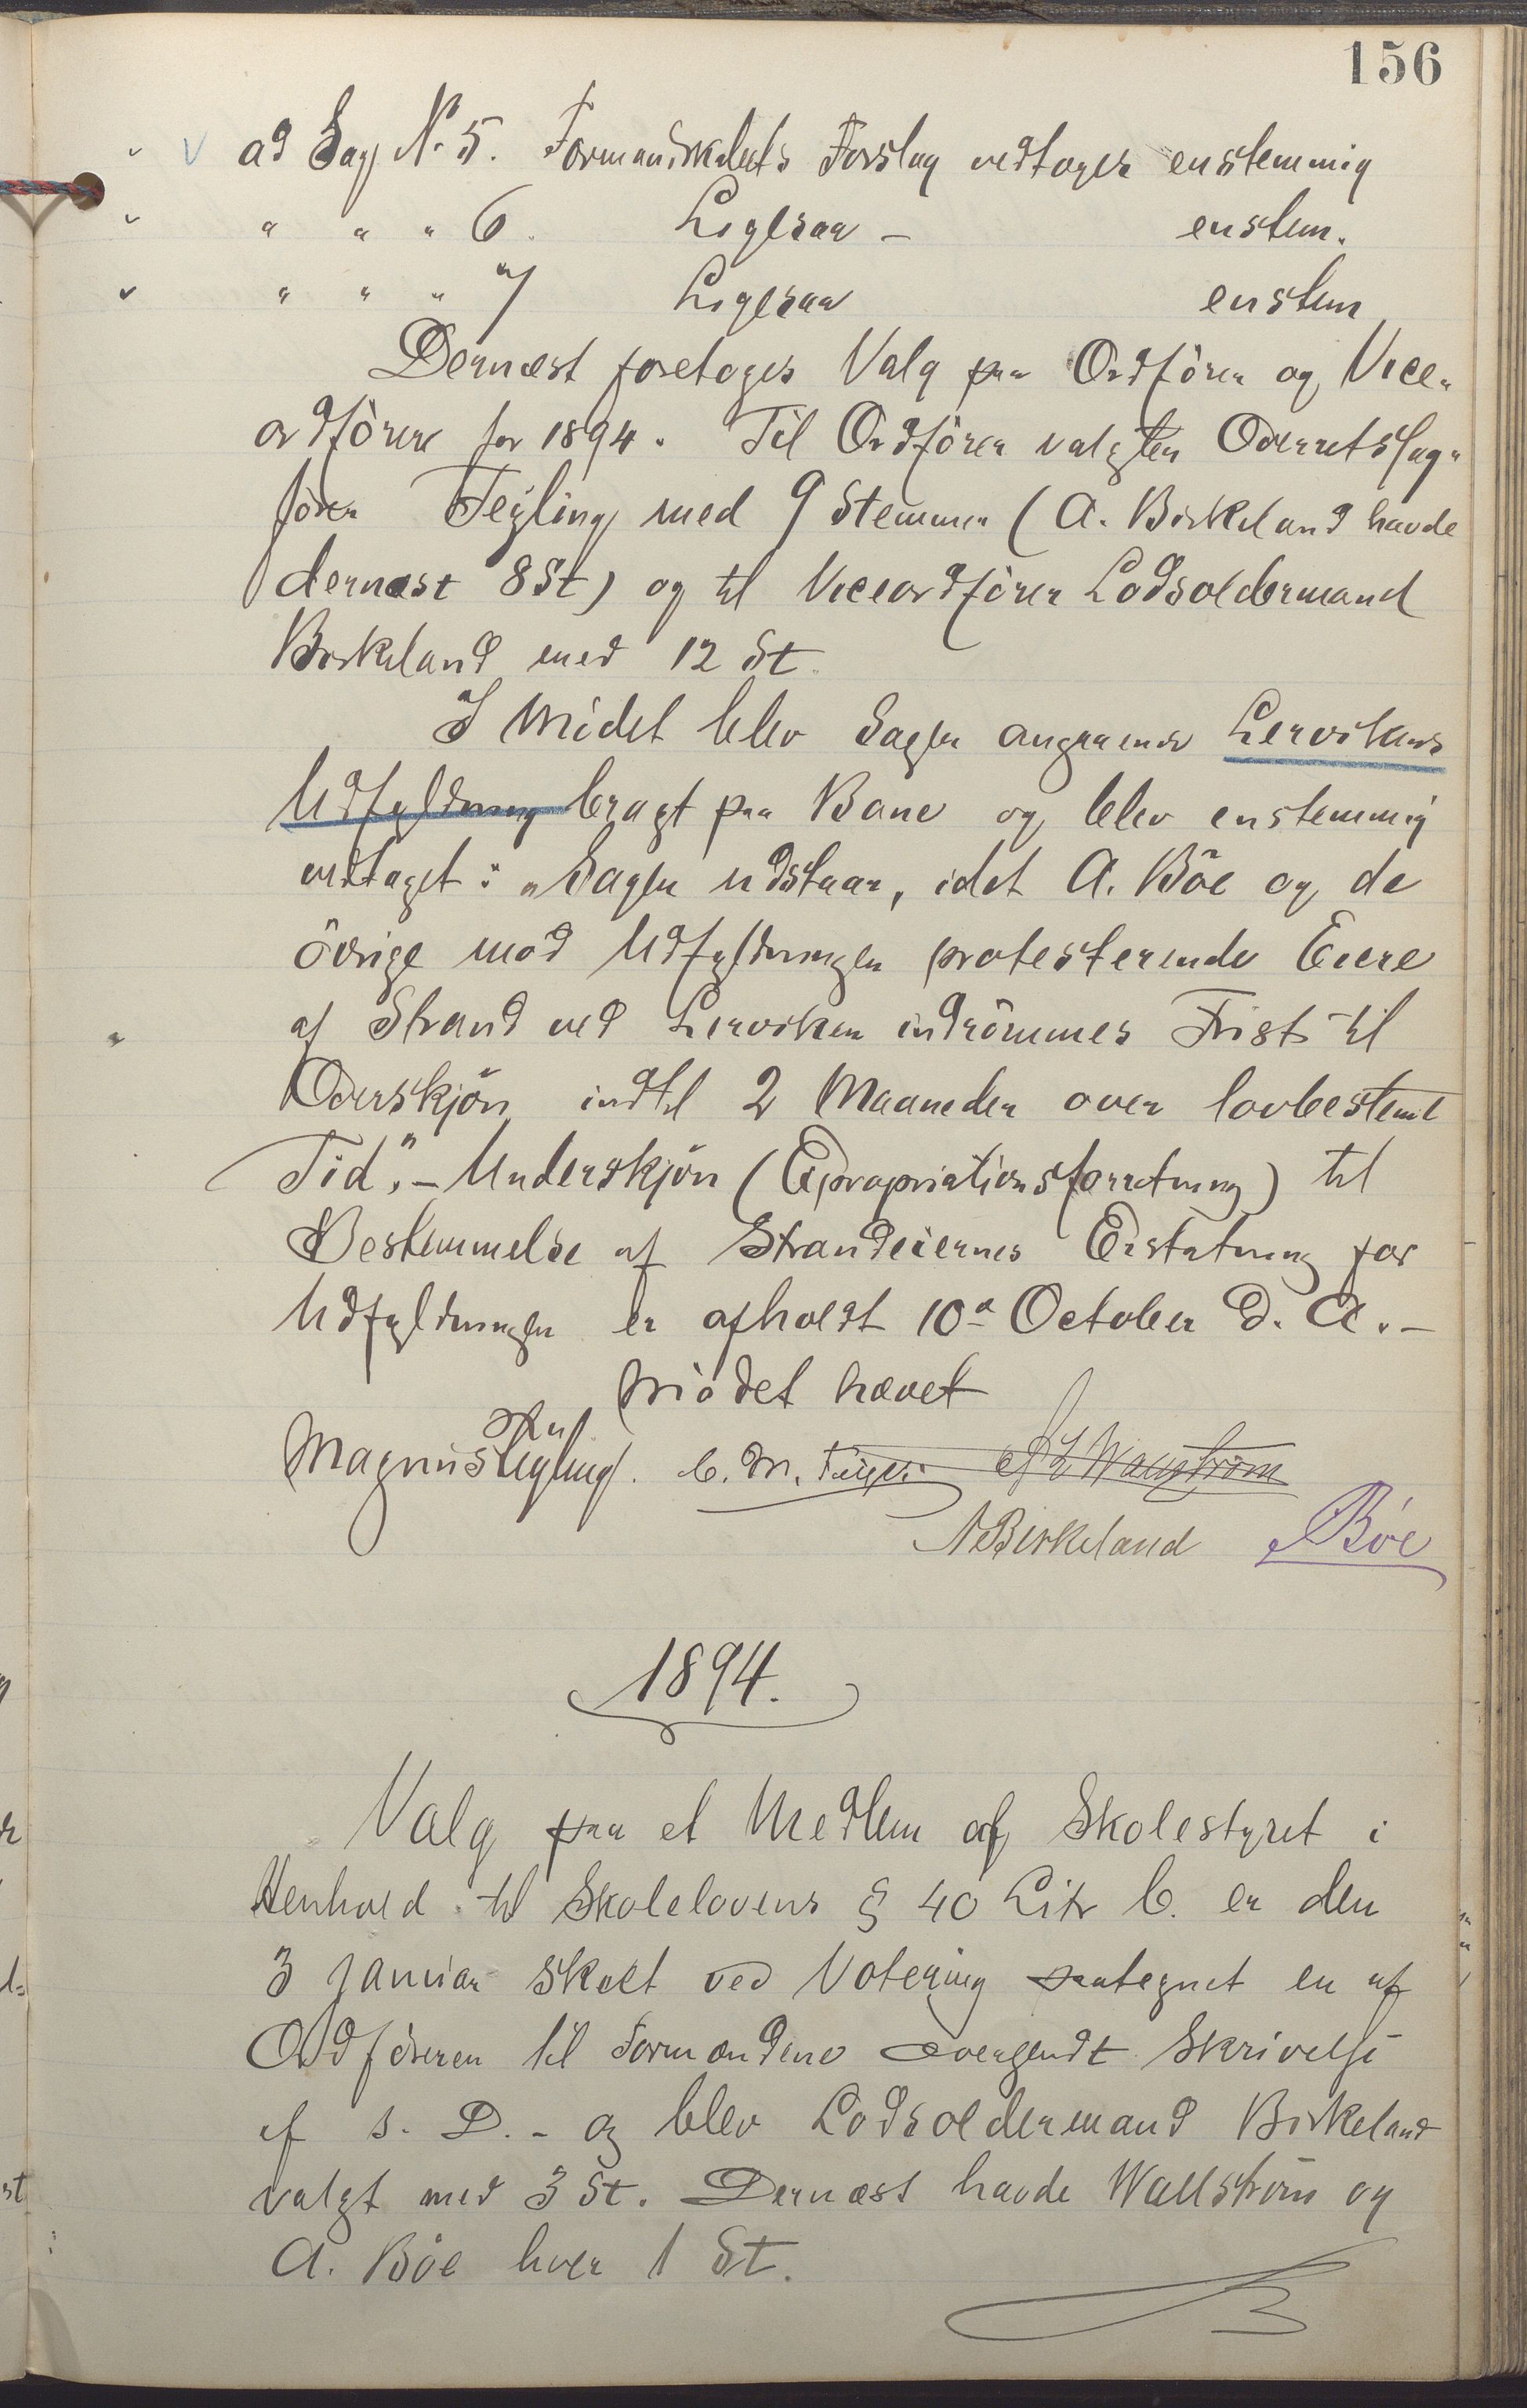 156
ad Sag No 5. Formandskabets Forslag vedtoges enstemmig
" " " 6. Ligesaa - enstem.
" " " 7 Ligesaa enstem
Dernæst foretoges Valg paa Ordförer og Vice-
ordförer for 1894. Til Ordförer valgtes Overretssag-
förer Feyling med 9 Stemmer (A. Birkeland havde
dernæst 8 St) og til Viceordförer Lodsoldermand
Birkeland med 12 St.
I Mödet blev Sagen angaaende Lervikens
Udfyldning bragt paa Bane og blev enstemmig
vedtaget: "Sagen udstaar, idet A. Böe og de
övrige mod Udfyldningen protesterende Eiere
af Strand ved Lerviken indrömmes Frist til
Overskjön indtil 2 Maaneder over lovbestemt
Tid". - Underskjön (Expropriationsforretning) til
Bestemmelse af Strandeiernes Erstatning for
Udfyldningen er afholdt 10de October d. A. -
Mödet hævet
Magnus Feyling. C. M. Wallström
A Birkeland A Böe
1894.
Valg paa et Medlem af Skolestyret i
Henhold til Skolelovens § 40 Litr C. er den
3 Januar skeet ved Votering paategnet en af
Ordföreren til Formændene oversendt Skrivelse
af s. D. - og blev Lodsoldermand Birkeland
valgt med 3 St. Dernæst havde Wallström og
A. Böe hver 1 St.